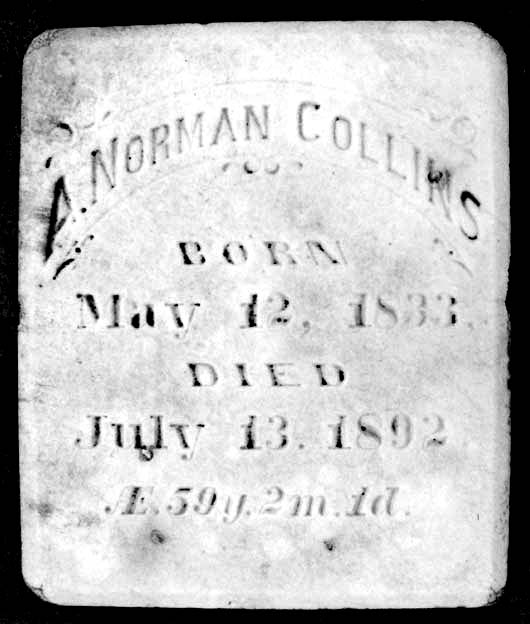 A. NORMAN COLLINS
BORN
May 12, 1833.
DIED
July 13. 1892
Æ. 59y. 2m. 1d.